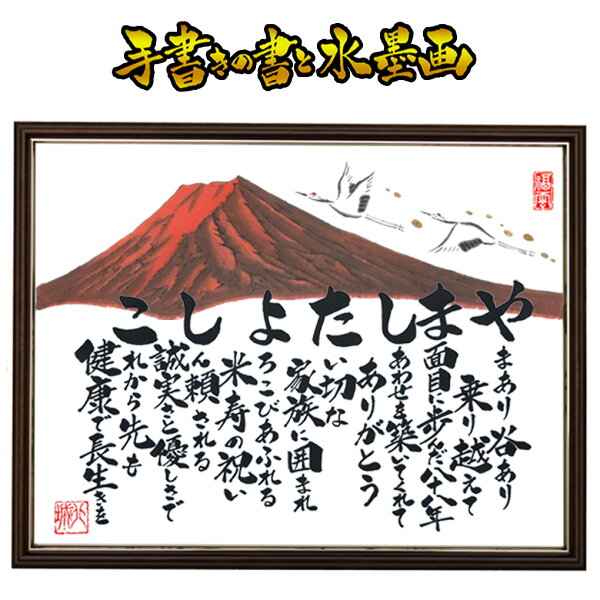 手書きの書と水墨画
やましたよしこ
まあり谷あり
乗り越えて
面目に歩んだ八十八年
あわせを築いてくれて
ありがとう
い切な
家族に囲まれ
ろこびあふれる
米寿の祝い
ん頼される
誠実さと優しさで
れから先も
健康で長生きを